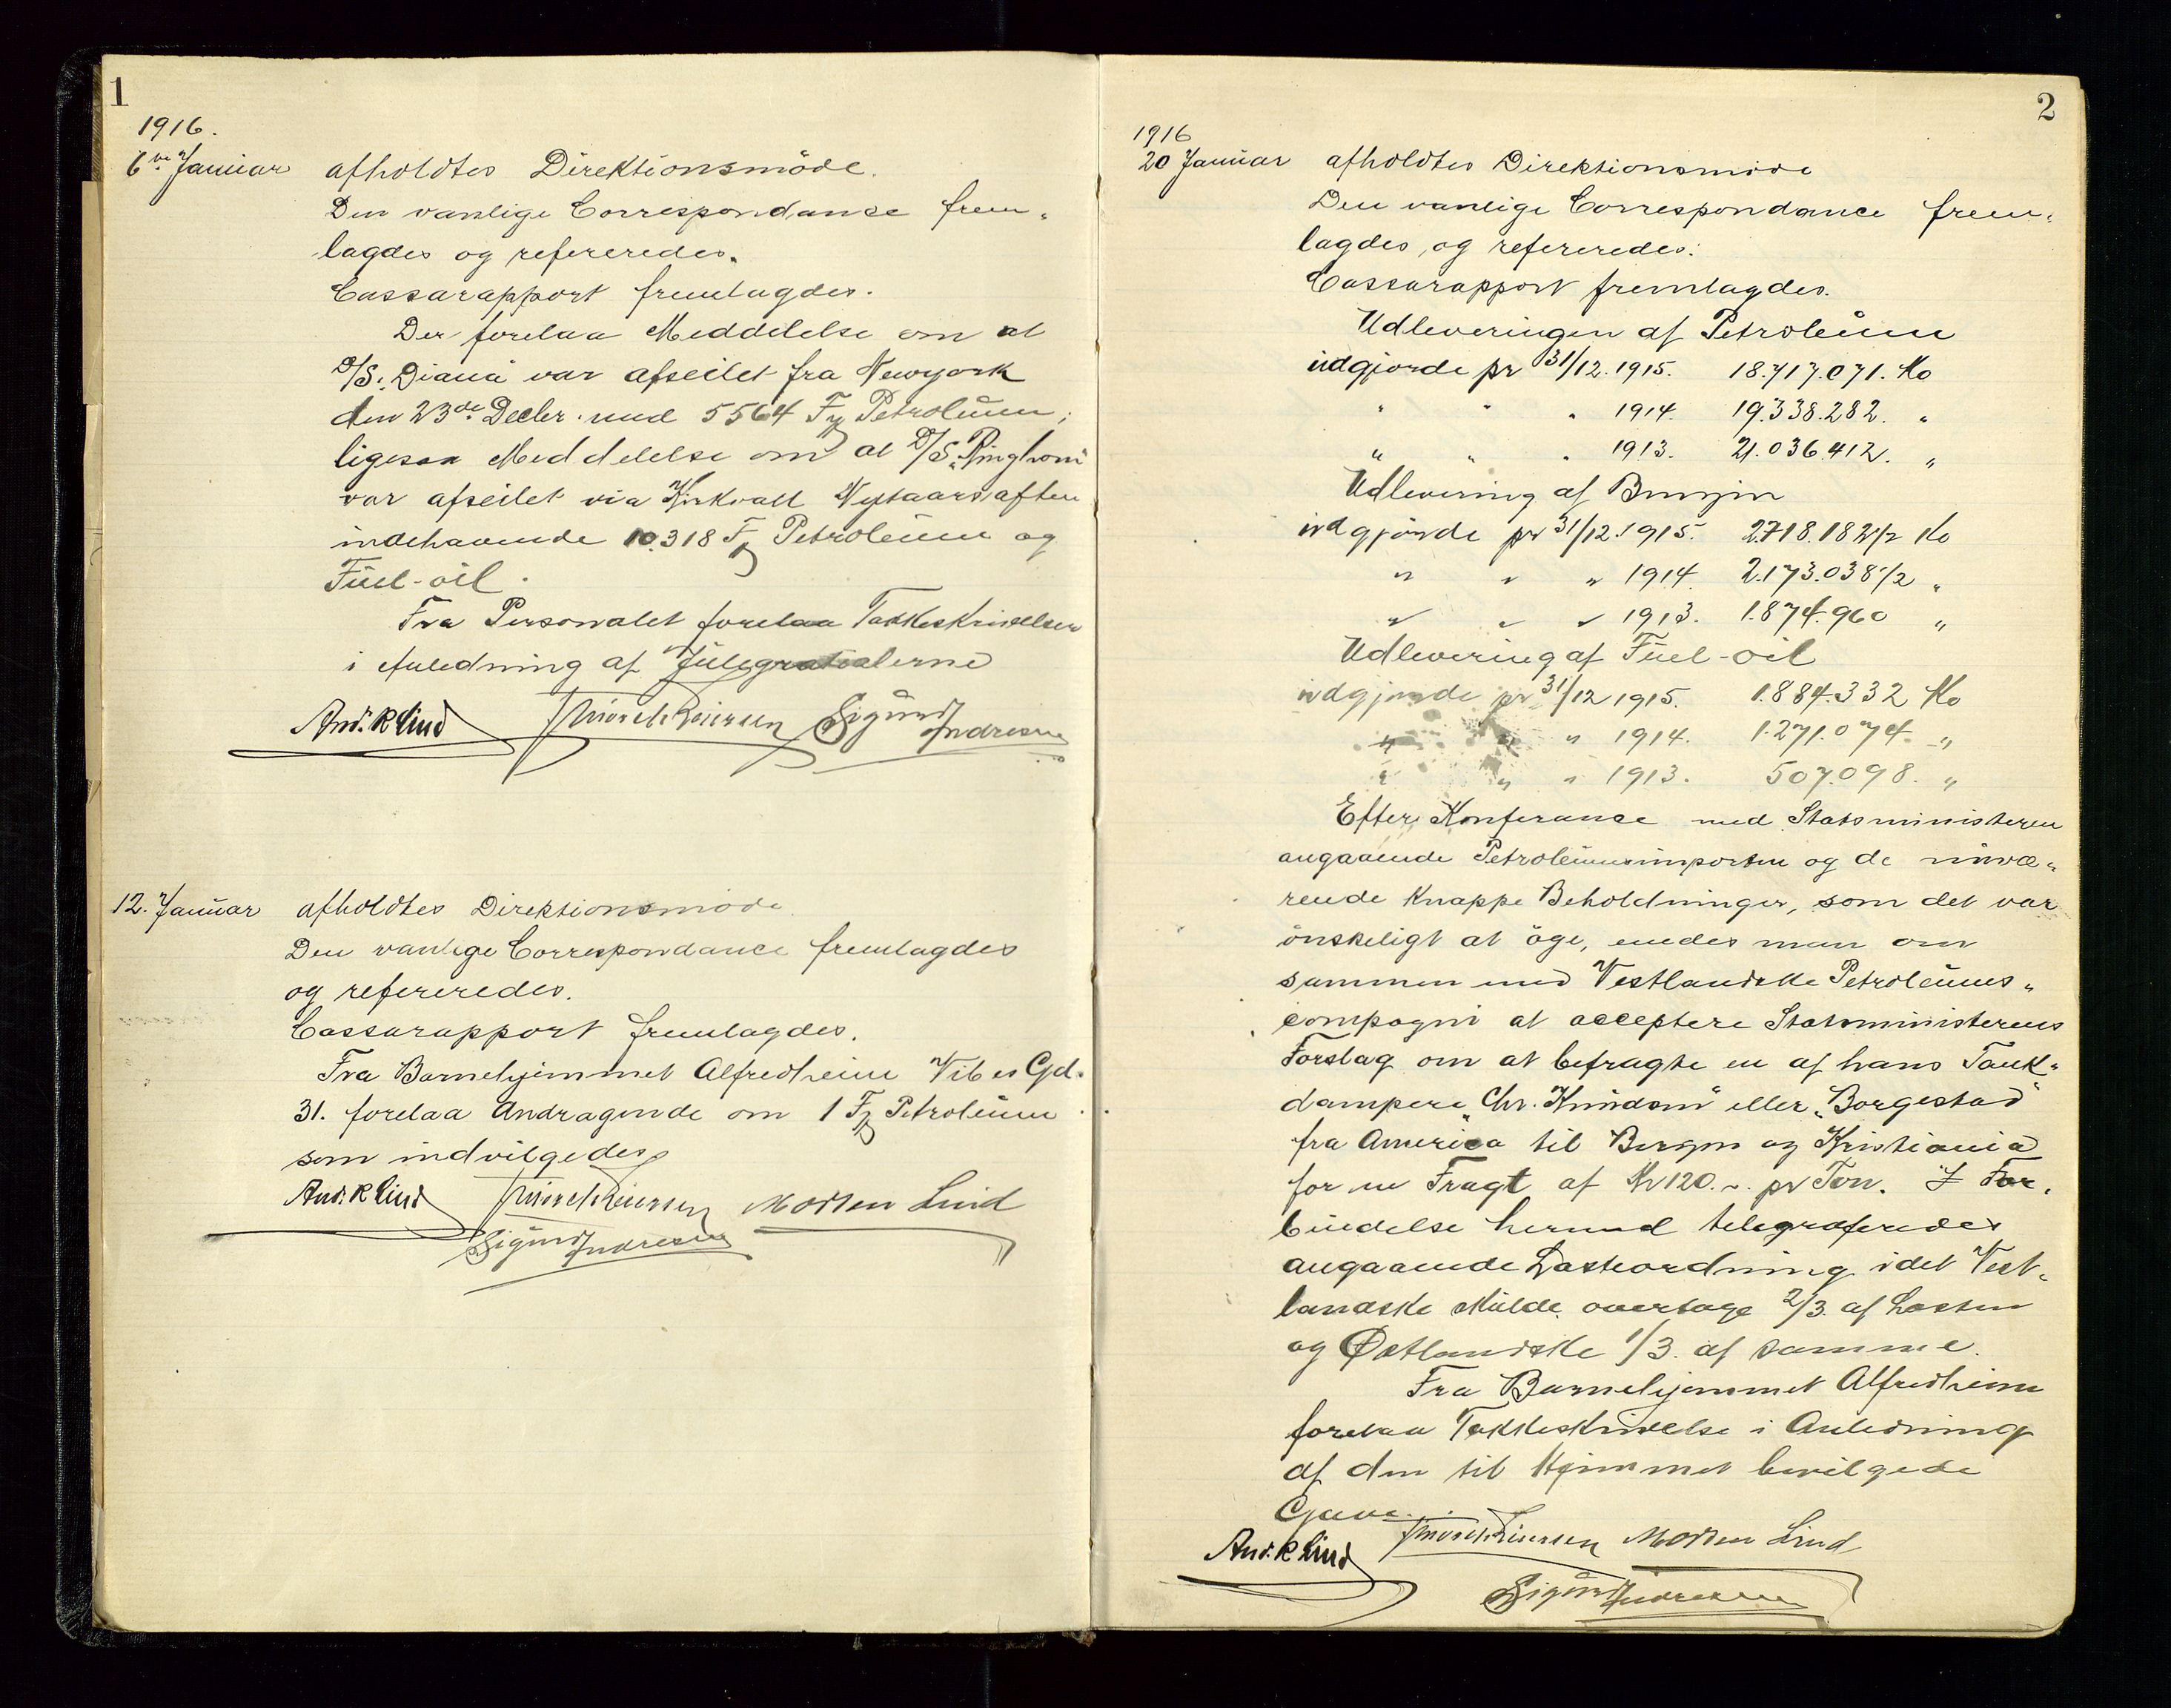 1
1916.
6te Januar afholdtes Direktionsmöde.
Den vanlige Correspondance frem-
lagdes og refereredes.
Cassarapport fremlagdes.
Der forelaa Meddelelse om at
D/S. "Diana" var afseilet fra Newyork
den 23de Decbr. med 5564 Fz Petroleum;
ligesaa Meddelelse om at D/S. "Ringhorn"
var afseilet via Kirkvall Nytaarsaften
indehavende 10.318 Fz Petroleum og
Fuel-oil.
Fra Personalet forelaa Takkeskrivelser
i Anledning af Julegratialerne
And. K Lind J Mørch Reiersen Sigurd Andresen
12. Januar afholdtes Direktionsmöde.
Den vanlige Correspondance fremlagdes
og refereredes.
Cassarapport fremlagdes.
Fra Barnehjemmet Alfredheim Vibes Gd.
31. forelaa Andragende om 1 Fz Petroleum
som indvilgedes
And. K Lind J Mørch Reiersen Morten Lind
Sigurd Andresen
2
1916
20 Januar afholdtes Direktionsmöde
Den vanlige Correspondance frem-
lagdes og refereredes.
Cassarapport fremlagdes.
Udleveringen af Petroleum
udgjorde pr 31/12. 1915. 18.717.071. Ko
" " " 1914. 19.338.282. "
" " " 1913. 21.036.412. "
Udlevering af Benzin
udgjorde pr 31/12. 1915. 2.718.182 1/2 Ko
" " " 1914. 2.173.038 1/2 "
" " " 1913. 1.874.960 "
Udlevering af Fuel-oil
udgjorde pr 31/12 1915. 1.884.332 Ko
" " " 1914. 1.271.074. "
" " " 1913. 507.098. "
Efter Konferanse med Statsministeren
angaaende Petroleumsimporten og de nuvæ-
rende knappe Beholdninger, som det var
önskeligt at öge, enedes man om
sammen med Vestlandske Petroleums-
compagni at acceptere Statsministerens
Forslag om at befragte en af hans Tank-
dampere "Chr. Knudsen" eller "Borgestad"
fra America til Bergen og Kristiania
for en Fragt af Kr 120.-. pr Ton. I For-
bindelse hermed telegraferedes
angaaende Lasteordning idet Vest-
landske skulde overtage 2/3. af Lasten
og Østlandske 1/3. af samme.
Fra Barnehjemmet Alfredheim
forelaa Takkeskrivelse i Anledning
af den til Hjemmet bevilgede
Gave.
And. K Lind J Mørch Reiersen Morten Lind
Sigurd Andresen